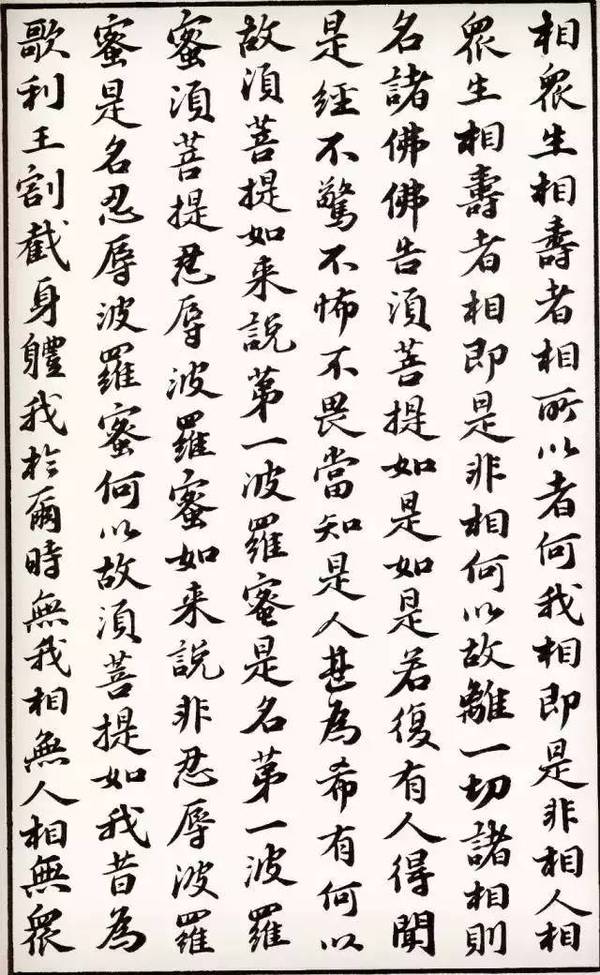 相眾生相壽者相所以者何我相即是非相人相
眾生相壽者相即是非相何以故離一切諸相則
名諸佛佛告須菩提如是如是若復有人得聞
是經不驚不怖不畏當知是人甚為希有何以
故須菩提如来說第一波羅蜜是名第一波羅
蜜須菩提忍辱波羅蜜如来說非忍辱波羅
蜜是名忍辱波羅蜜何以故須菩提如我昔為
歌利王割截身體我於爾時無我相無人相無眾